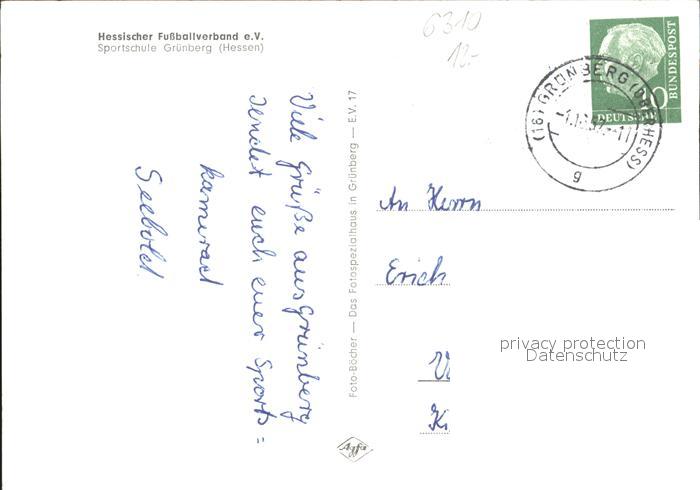 Hessischer Fußballverband e.V.
Sportschule Grünberg (Hessen)
6310
12.-
BUNDESPOST
DEUTSCHE
(16) GRÜNBERG (OBERHESS)
g
Viele Grüße aus Grünberg
sendet euch euer Sports=
kamerad
Seebold
Foto-Böcher — Das Fotospezialhaus in Grünberg — E.V. 17
An Herrn
Erich
privacy protection
Datenschutz
Agfa